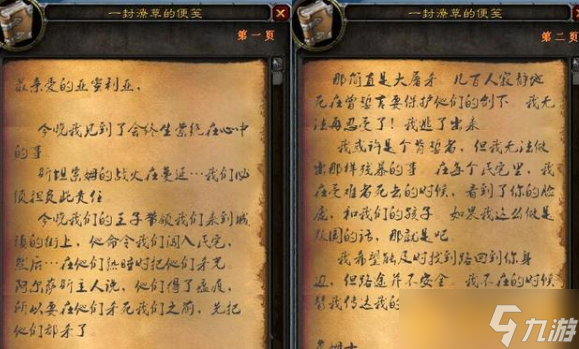 一封潦草的便笺
第一页
最亲爱的亚蜜利亚,
今晚我见到了会终生萦绕在心中
的事
斯坦索姆的战火在蔓延…我们必
须担负此责任
今晚我们的王子带领我们来到城
镇的街上,他命令我们闯入民宅,
然后…在他们熟睡时把他们杀光
阿尔萨斯主人说,他们得了瘟疫,
所以要在他们杀死我们之前,先把
他们都杀了
一封潦草的便笺
第二页
那简直是大屠杀 几百人寂静地
死在曾誓言要保护他们的剑下 我无
法再忍受了!我逃了出来
我或许是个背誓者,但我无法做
出那样残暴的事 在每个民宅里,我
在受难者死去的时候,看到了你的脸
庞,和我们的孩子 如果我这么做是
叛国的话,那就是吧
我希望能及时找到路回到你身
边,但路途并不安全 我不在的时候
替我传达我的
九游